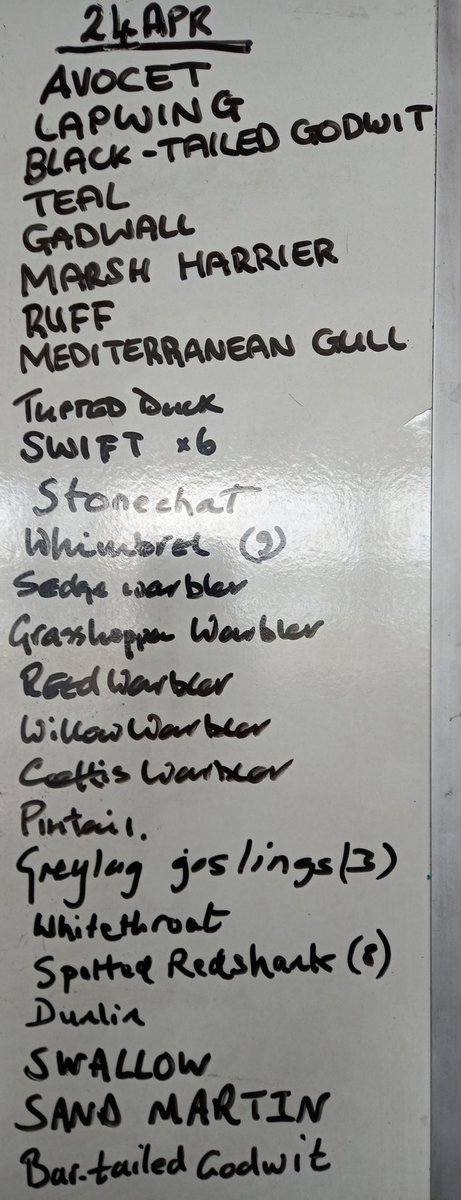 24 APR
AVOCET
LAPWING
BLACK-TAILED GODWIT
TEAL
GADWALL
MARSH HARRIER
RUFF
MEDITERRANEAN GULL
TUFTED DUCK
SWIFT x6
Stonechat
Whimbrel (9)
Sedge warbler
Grasshopper Warbler
REed Warbler
Willow Warbler
Cettis Warbler
Pintail.
Greylag goslings (3)
Whitethroat
Spotted Redshank (8)
Dunlin
SWALLOW
SAND MARTIN
Bar-tailed Godwit